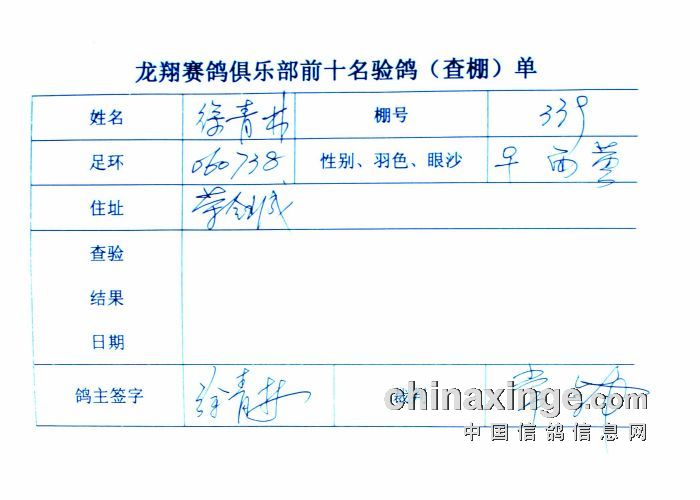 龙翔赛鸽俱乐部前十名验鸽（查棚）单
姓名 徐青林 棚号 339
足环 060738 性别、羽色、眼沙 早 雨 黄
住址
查验
结果
日期
鸽主签字 徐青林
chinaxinge.com
中国信鸽信息网